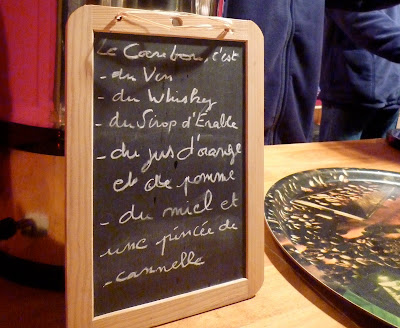 Le Caribou, c'est
- du Vin
- du Whisky
- du Sirop d'Erable
- du jus d'orange
et de pomme
- du miel et
une pincée de
- cannelle